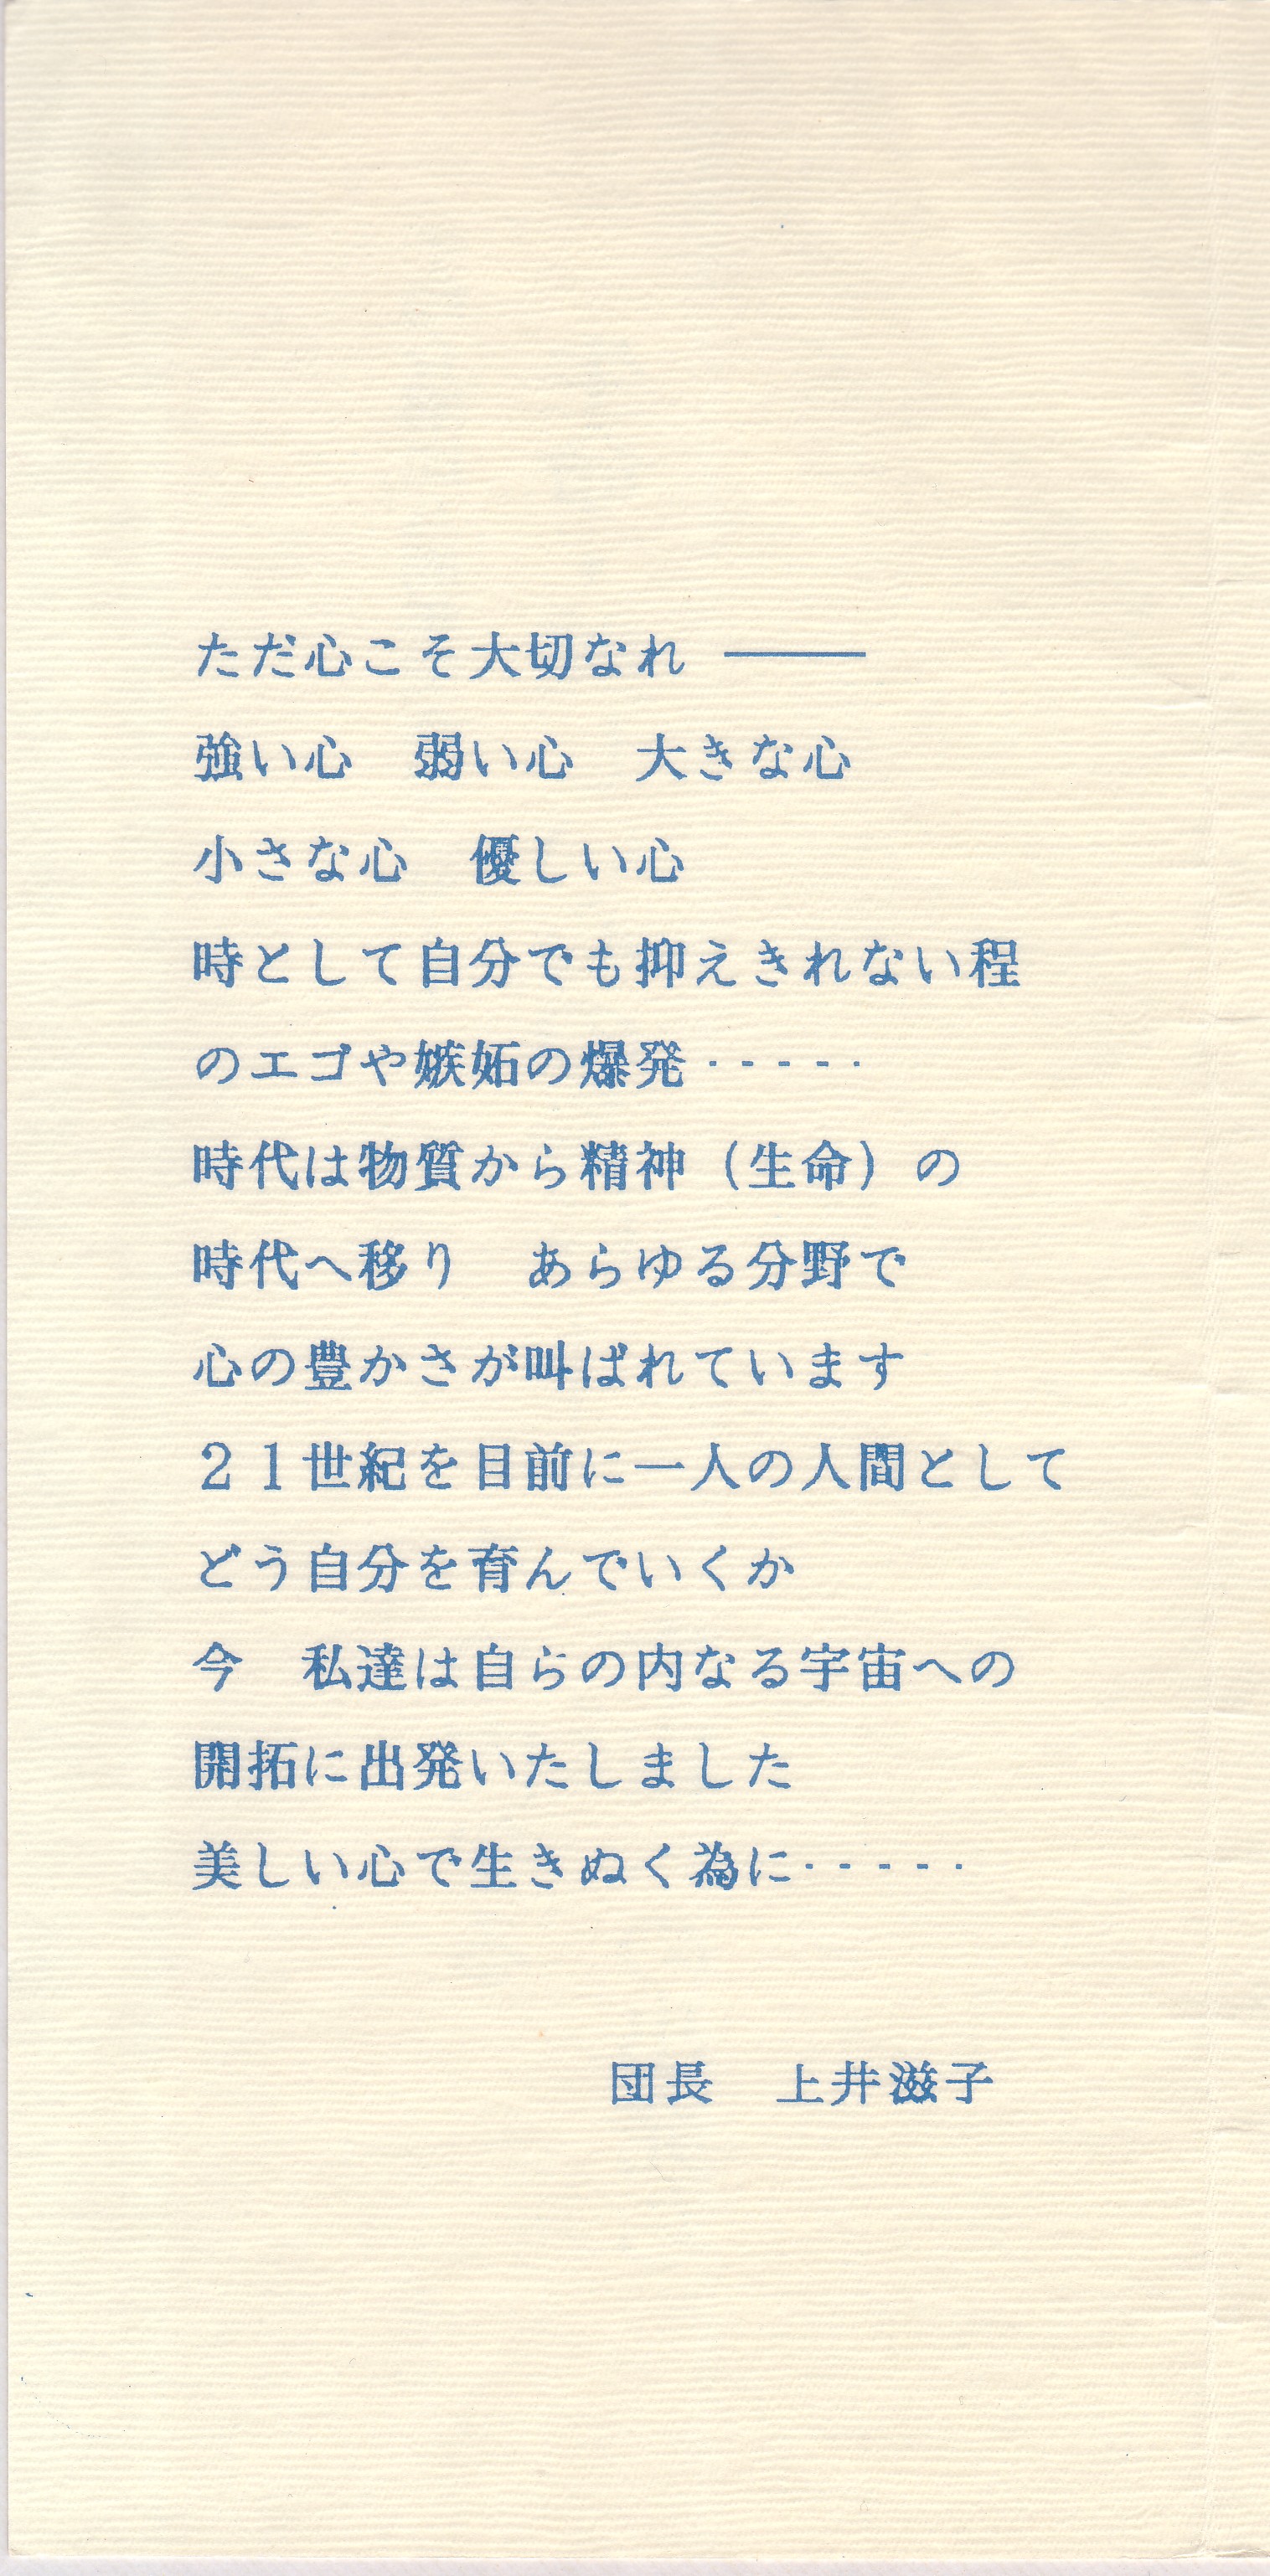 ただ心こそ大切なれ ―――
強い心　弱い心　大きな心
小さな心　優しい心
時として自分でも抑えきれない程
のエゴや嫉妬の爆発‐‐‐‐‐
時代は物質から精神（生命）の
時代へ移り　あらゆる分野で
心の豊かさが叫ばれています
２１世紀を目前に一人の人間として
どう自分を育んでいくか
今　私達は自らの内なる宇宙への
開拓に出発いたしました
美しい心で生きぬく為に‐‐‐‐‐
団長　上井滋子